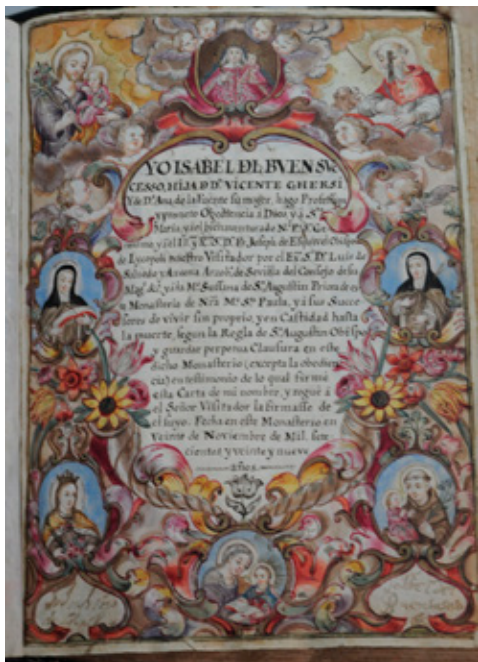 YO ISABEL DL BVEN SV-
CESSO, HIJA D Dn VICENTE GHERSI
Y de Da. Ana de la Fuente su muger, hago Profession
y prometo Obediencia a Dios, y a Sta.
Maria, y al bienaventurado N. P. S. Ge-
ronimo y al
de Lycopoli nuestro Visitador por el Exo. S. D. Luis de
Salzedo y Azcona Arzobo. de Sevilla del Consejo de su
Mag. &c. y a la Me. Sussana de Sn. Augustin Priora de es-
te Monasterio de Nra. Me. Sta. Paula, y a sus Succe-
sores de vivir sin proprio, y en Castidad hasta
la muerte, segun la Regla de Sn. Augustin Obispo,
y guardar perpetua Clausura en este
dicho Monasterio (excepta la obedien-
cia) en testimonio de lo qual firmè
esta Carta de mi nombre, y roguè à
el Señor Visitador la firmasse de
el suyo. Fecha en este Monasterio en
Veinte de Noviembre de Mil, sete-
cientos y veinte y nueve
años.